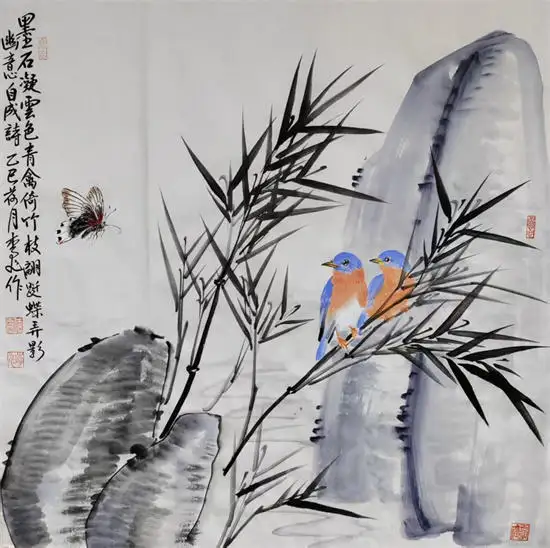 墨石凝雲色青禽倚竹枝翩跹蝶弄影
幽意自成詩乙巳荷月李作